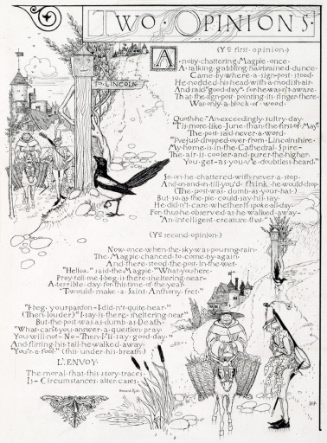 TWO·OPINIONS·
(Yᵉ first·opinion·)
TO LINCOLN
A·noisy·chattering·Magpie·once·
A·talking·gabbling·hairbrained·dunce·
Came·by·where·a·sign-post·stood·
He·nodded·his·head·with·a·modish·air·
And·said·"good·day"·for·he·wasn't·aware·
That·the·sign-post·pointing·its·finger·there·
Was·only·a·block·of·wood·
Quoth·he·"An·exceedingly·sultry·day·
'Tis·more·like·June·than·the·first·of·May"
The·post·said·never·a·word·
"I've·just·dropped·over·from·Lincolnshire·
My·home·is·in·the·Cathedral·Spire·
The·air·is·cooler·and·purer·the·higher·
You·get·as·you've·doubtless·heard"
So·on·he·chattered·with·never·a·stop·
And·on·and·on·till·you'd·think·he·would·drop
(The·post·was·dumb·as·your·hat·)
But·so·as·the·pie·could·say·his·say·
He·didn't·care·whether·it·spoke·all·day·
For·thus·he·observed·as·he·walked·away·
"An·intelligent·creature·that"
(Yᵉ second·opinion·)
Now·once·when·the·sky·was·pouring·rain·
The·Magpie·chanced·to·come·by·again·
And·there·stood·the·post·in·the·wet·
"Helloa"·said·the·Magpie·"What·you·here·
Pray·tell·me·I·beg·is·there·sheltering·near·
A·terrible·day·for·this·time·of·the·year·
'Twould·make·a·Saint·Anthony·fret"
"I·beg·your·pardon·I·didn't·quite·hear"
(Then·louder)·"I·say·is·there·sheltering·near"
But·the·post·was·as·dumb·as·Death·
"What·can't·you·answer·a·question·pray·
You·will·not·No·Then·I'll·say·good·day"
And·flirting·his·tail·he·walked·away·
"You're·a·fool"·(this·under·his·breath·)
L'ENVOY:
The·moral·that·this·story·traces·
Is·Circumstances·alter·cases·
Howard Pyle·
HP·